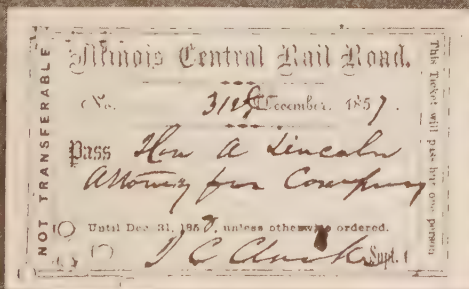 Illinois Central Rail Road.
No. 31st December. 1857.
Pass Hon A Lincoln
Attorney for Company
Until Dec 31, 1858, unless otherwise ordered.
J C Clarke Supt.
NOT TRANSFERABLE
This Ticket will pass but one person